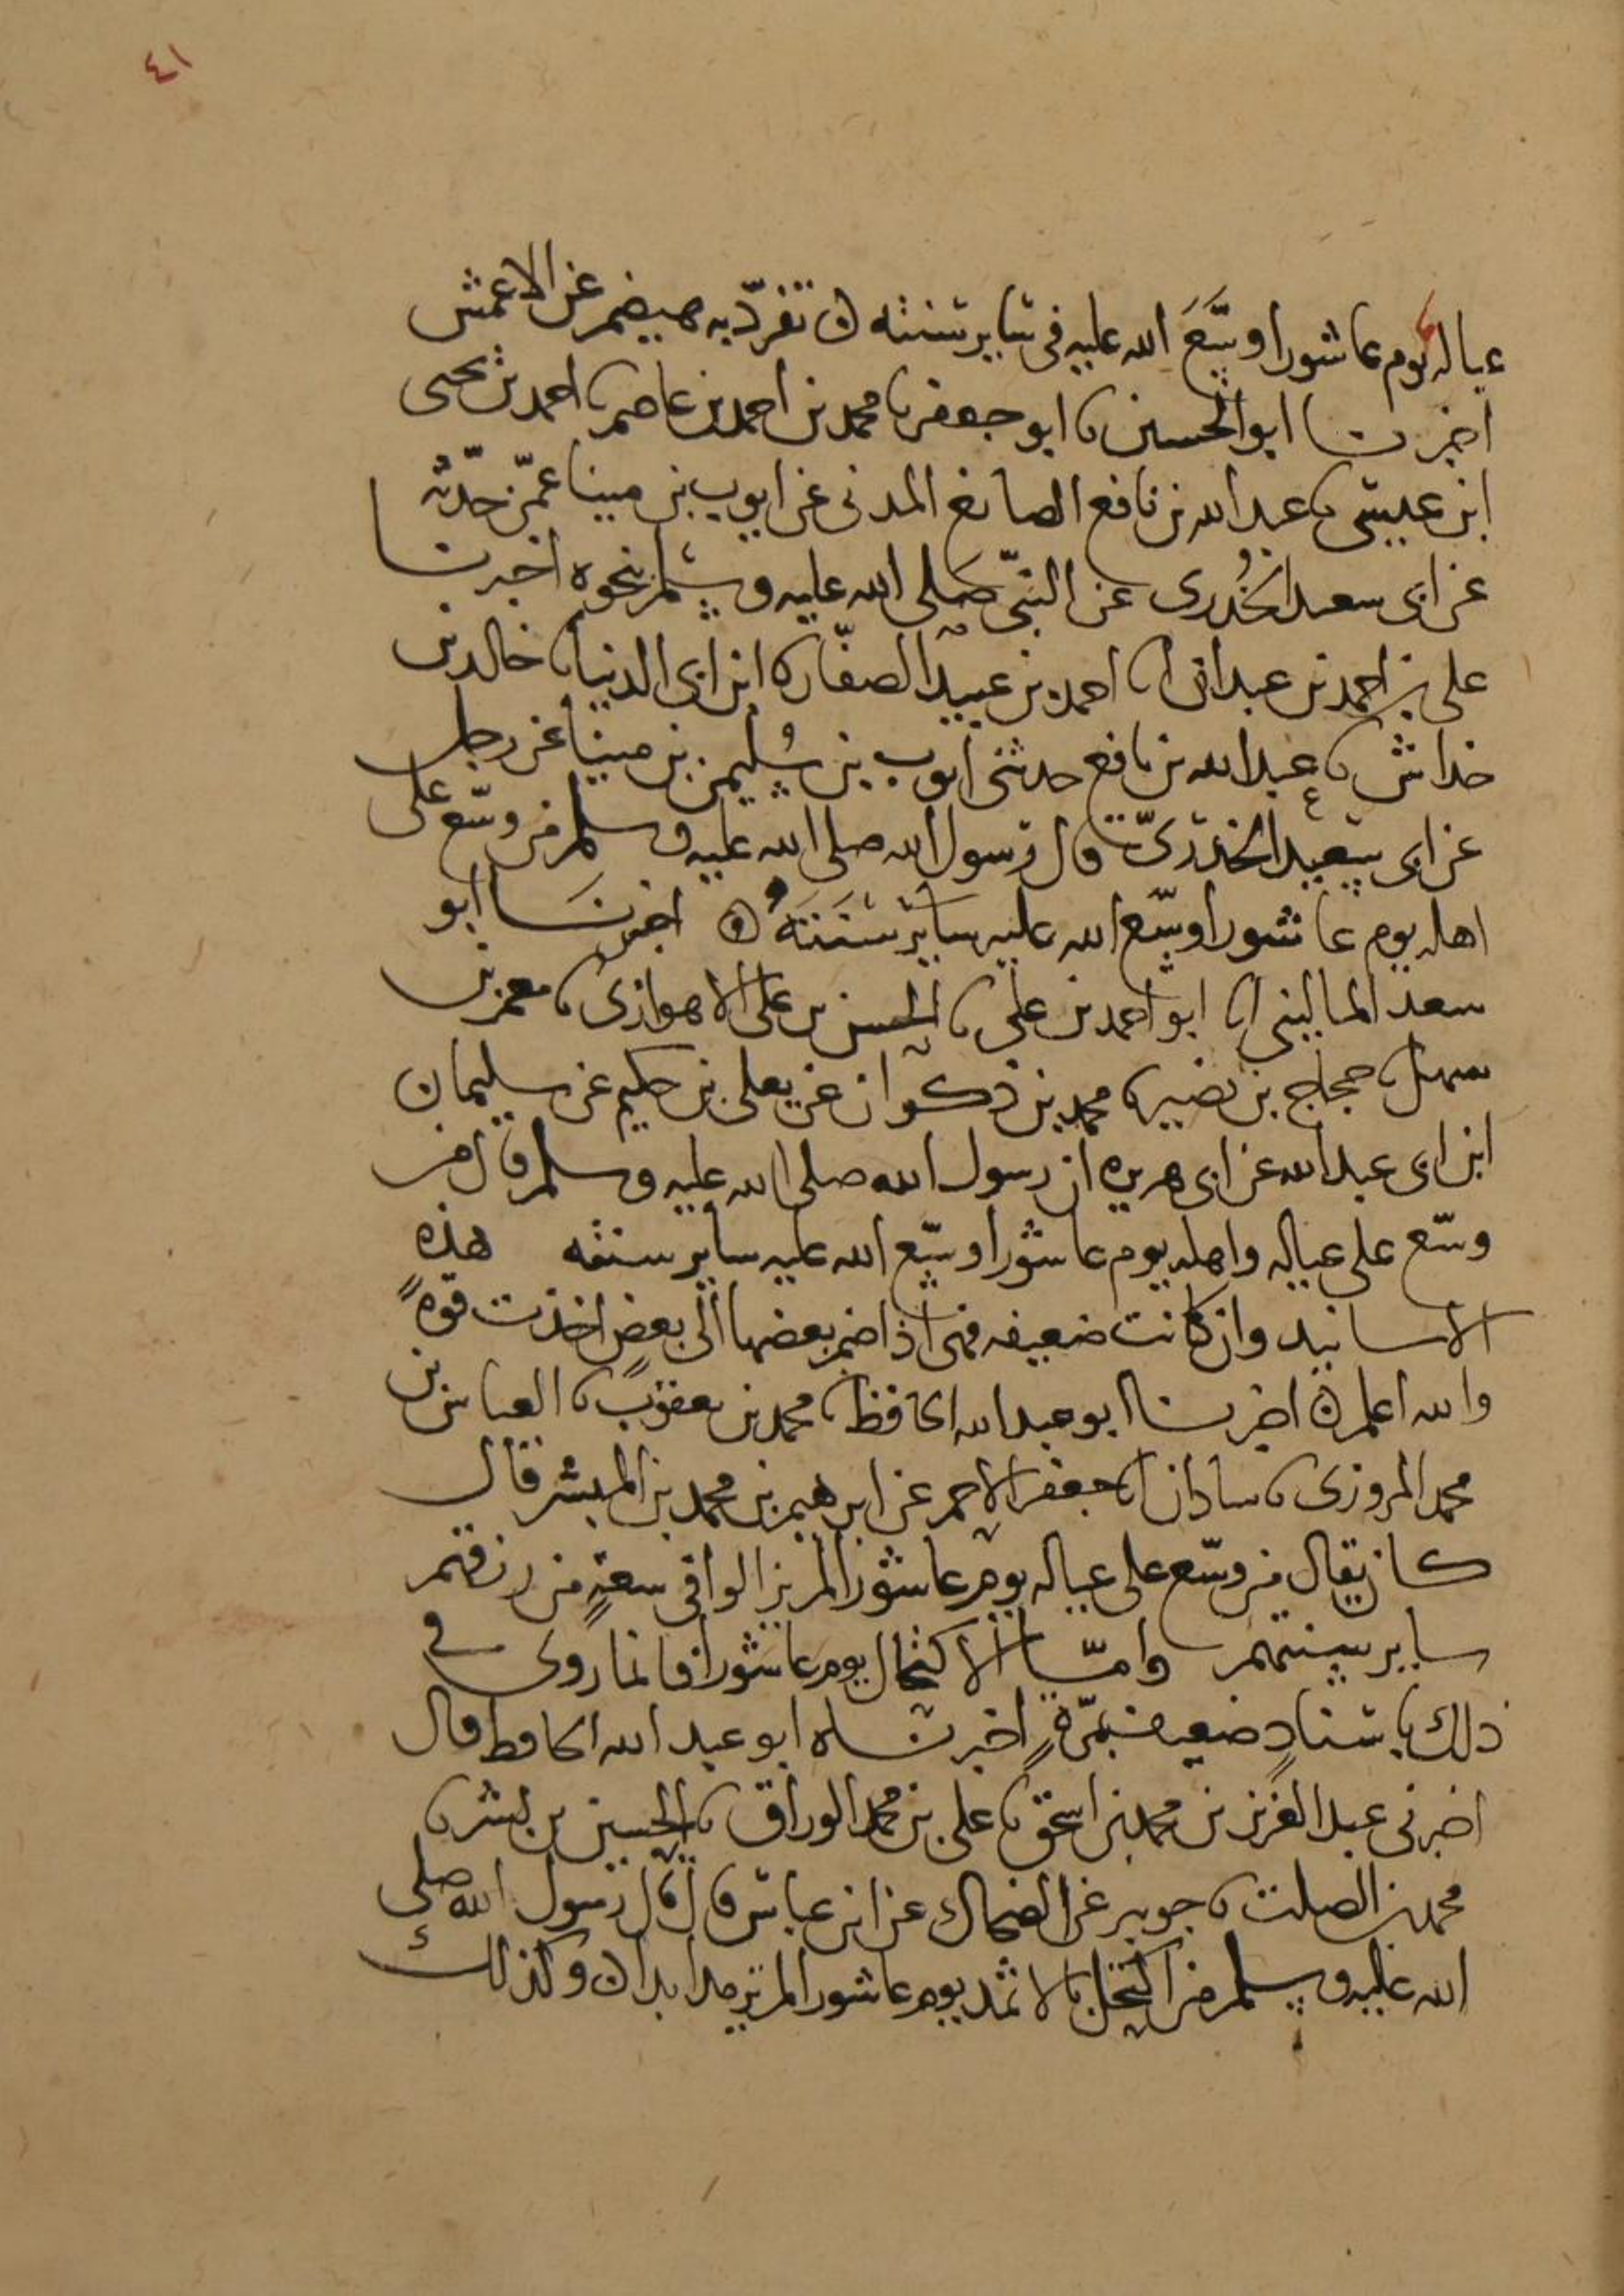 ٤١
عياله يوم عاشورا وسّعَ الله عليه في ساير سنته ه تفرّد به هيصم عن الاعمش
اخبرنا ابو الحسين نا ابو جعفر نا محمد بن احمد بن عاصم نا احمد بن يحيى
ابن عيسى نا عبد الله بن نافع الصايغ المدني عن ايوب بن مينا عمّن حدّثه
عن ابي سعيد الخُدري عن النبيّ صَلى الله عليه وسلم بنحوه اخبرنا
علي بن احمد بن عبدان انا احمد بن عبيد الصفّار نا ابن ابي الدنيا نا خالد بن
خداش نا عبد الله بن نافع حدثني ايوب بن سُليمن بن مينا عن رجل
عن ابي سَعيد الخدريّ قال رسول الله صلى الله عليه وسلم من وسّع على
اهله يوم عاشورا وسّع الله عليه ساير سَنَتَهُ ه اخبرنَا ابو
سعد الماليني انا ابو احمد بن علي نا الحسن بن على الاهوازي نا معمر بن
سهل نا حجاج بن نصير نا محمد بن ذكوان عن يعلى بن حكيم عن سليمان
ابن ابي عبد الله عن ابي هريره ان رسول الله صلى الله عليه وسلم قال من
وسّع على عياله واهله يوم عاشورا وسّع الله عليه ساير سنته هذه
الاسانيد وان كانت ضعيفه فهى اذا ضم بعضها الى بعضٍ اخذت قوةً
والله اعلم ه اخبرنا ابو عبد الله الحافظ نا محمد بن يعقوب نا العباس بن
محمد المروزي نا ساذان انا جعفر الاحمر عن ابرهيم بن محمد بن المنتشر قال
كان يقال من وسّع على عياله يوم عاشورا لم يزالوا في سعةٍ من رزقهم
ساير سنتهم وامّا الاكتحال يوم عاشورا فانما روي في
ذلك باسنادٍ ضعيف بمرّةٍ اخبرناه ابو عبد الله الحافظ قال
اخبرني عبد العزيز بن محمد بن اسحق نا على بن محمد الوراق نا الحسين بن بشر نا
محمد بن الصلت نا جويبر عن الضحاك عن ابن عباس قال قال رسول الله صلى
الله عليه وسلم من اكتحل بالاثمد يوم عاشورا لم يرمد ابدا ه وكذلك